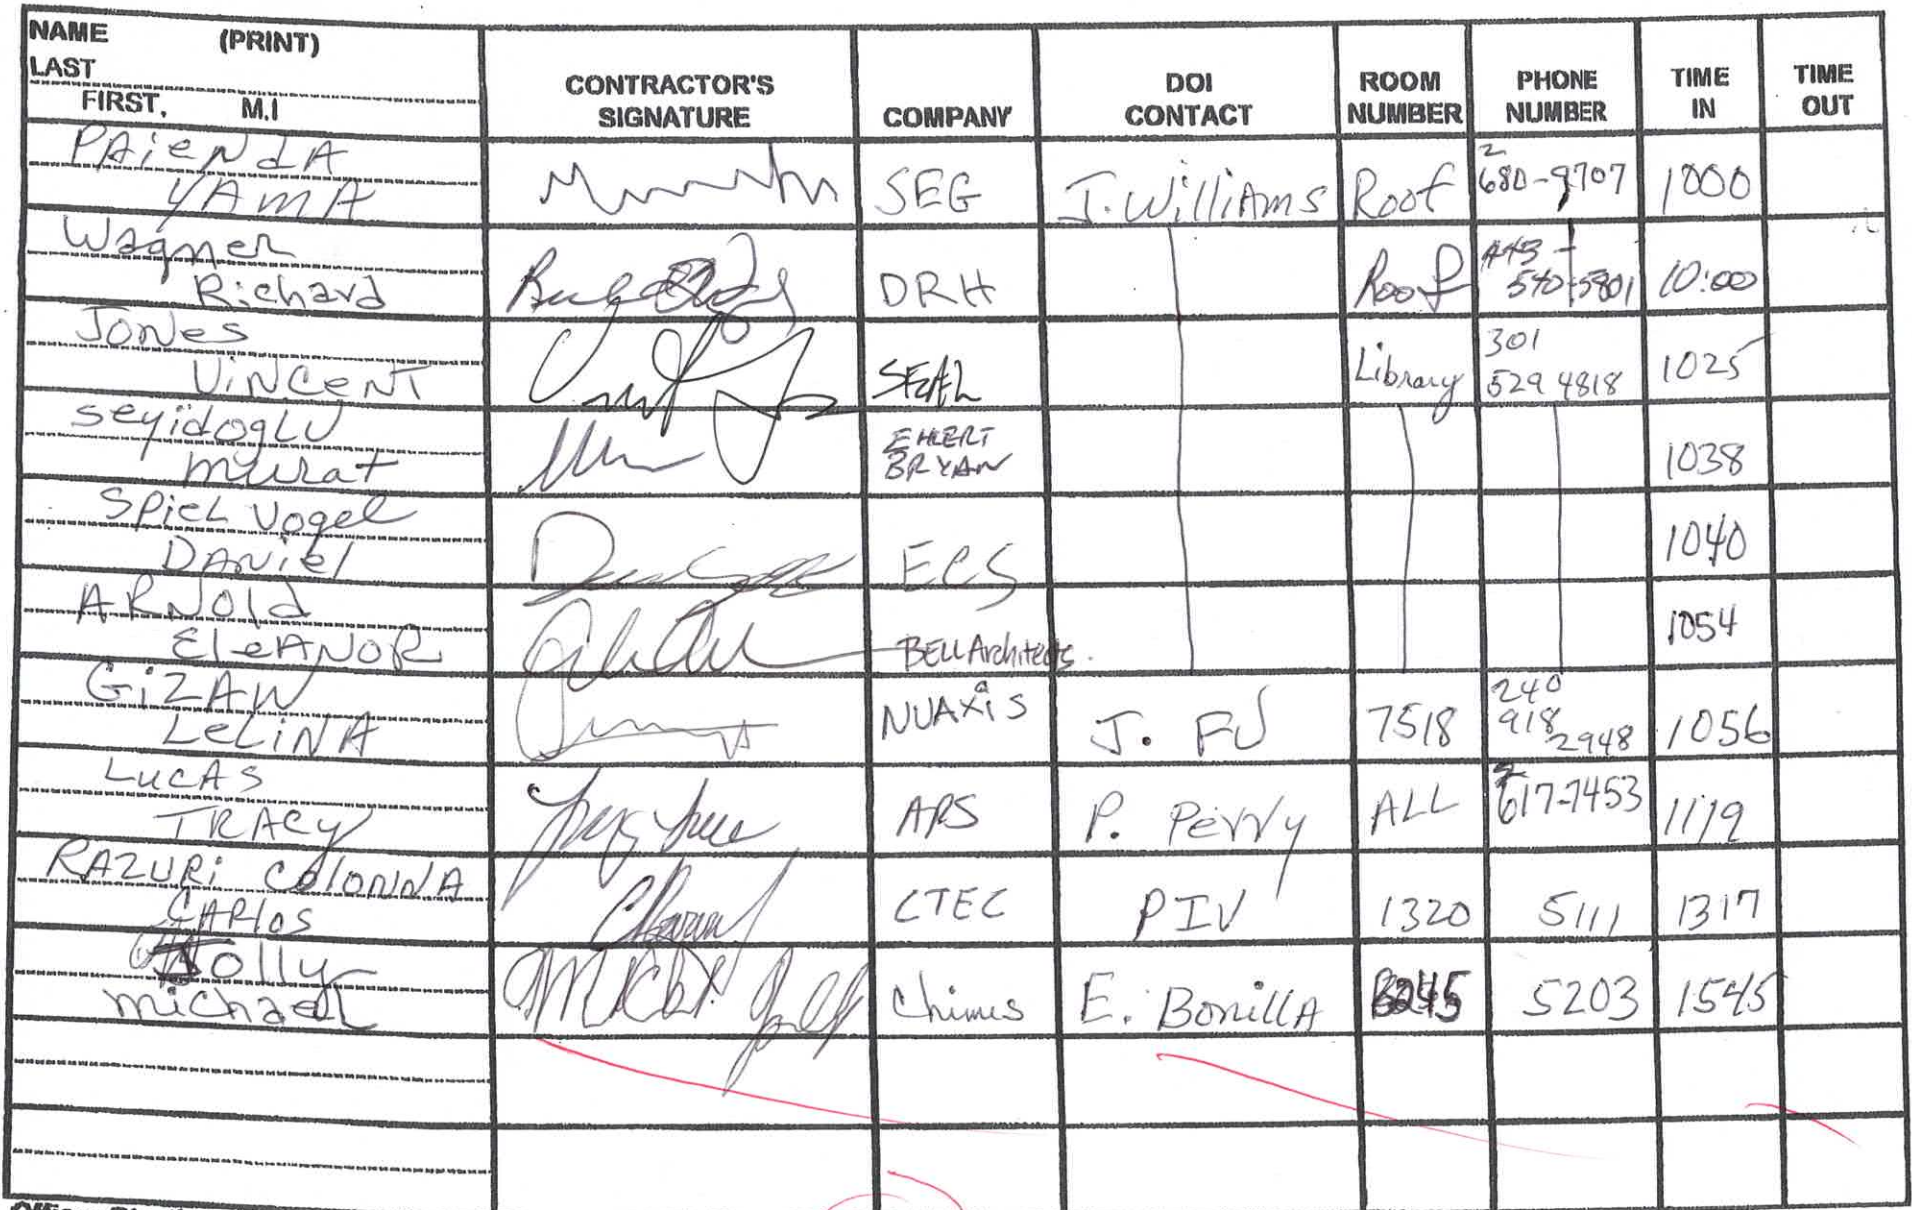 NAME (PRINT)
LAST
FIRST, M.I
CONTRACTOR'S SIGNATURE
COMPANY
DOI CONTACT
ROOM NUMBER
PHONE NUMBER
TIME IN
TIME OUT
PAiENdA
YAMA
SEG
J. WilliAms
Roof
2
680-9707
1000
Wagner
Richard
DRH
Roof
443-
540-5801
10:00
JONes
ViNCeNT
Library
301
529 4818
1025
seyidogLU
murat
EHLERT
BRYAN
1038
SPieL Vogel
DANiel
ECS
1040
ARNOld
EleANOR
BELL Architects.
1054
GiZAW
LeLiNA
NUAXiS
J. FU
7518
240
918
2948
1056
LucAS
TRACy
APS
P. Perry
ALL
2
617-7453
1119
RAZURi COlONNA
CARlos
CTEC
PIV
1320
5111
1317
Jolly
michael
Chimes
E. BonillA
5203
1545